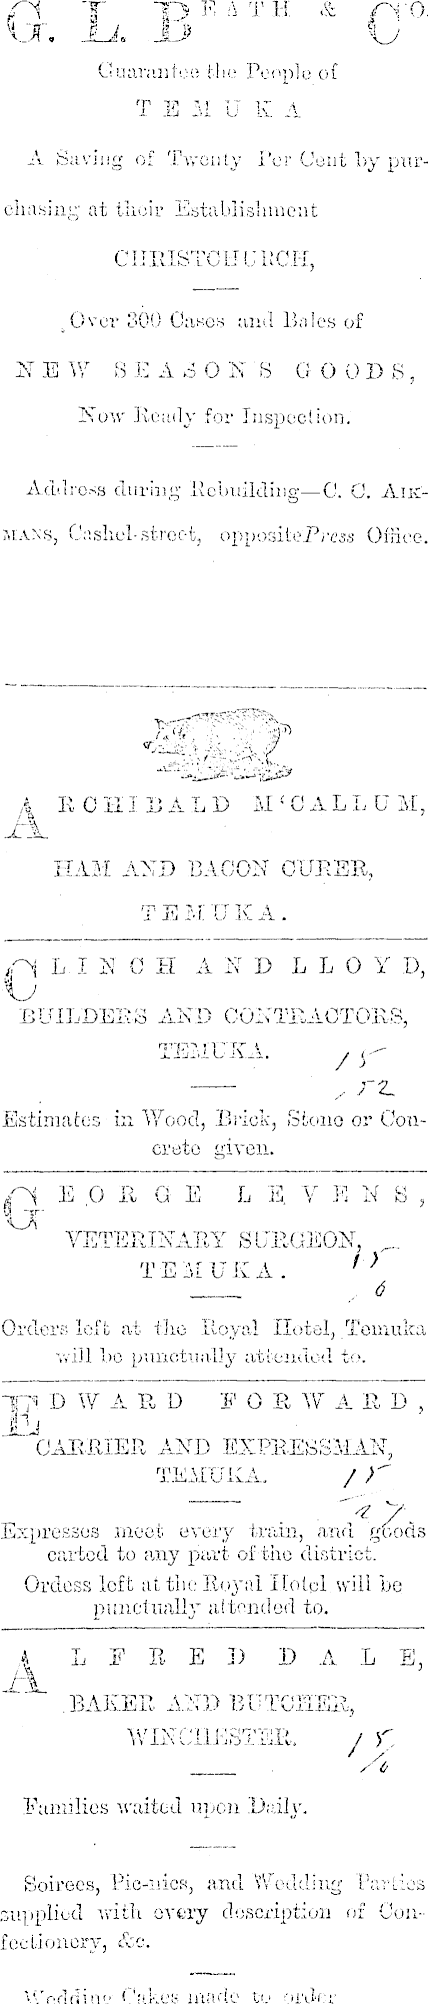 G. L. BEATH & CO.
Guarantee the People of
TEMUKA
A Saving of Twenty Per Cent by pur-
chasing at their Establishment
CHRISTCHURCH,
Over 300 Cases and Bales of
NEW SEASON'S GOODS,
Now Ready for Inspection.
Address during Rebuilding—C. C. AIK-
MANS, Cashel-street, opposite Press Office.
ARCHIBALD M'CALLUM,
HAM AND BACON CURER,
TEMUKA.
CLINCH AND LLOYD,
BUILDERS AND CONTRACTORS,
TEMUKA.
15
52
Estimates in Wood, Brick, Stone or Con-
crete given.
GEORGE LEVENS,
VETERINARY SURGEON,
TEMUKA.
15
6
Orders left at the Royal Hotel, Temuka
will be punctually attended to.
EDWARD FORWARD,
CARRIER AND EXPRESSMAN,
TEMUKA.
15
27
Expresses meet every train, and goods
carted to any part of the district.
Ordess left at the Royal Hotel will be
punctually attended to.
ALFRED DALE,
BAKER AND BUTCHER,
WINCHESTER.
15
6
Families waited upon Daily.
Soirees, Pic-nics, and Wedding Parties
supplied with every description of Con-
fectionery, &c.
Wedding Cakes made to order